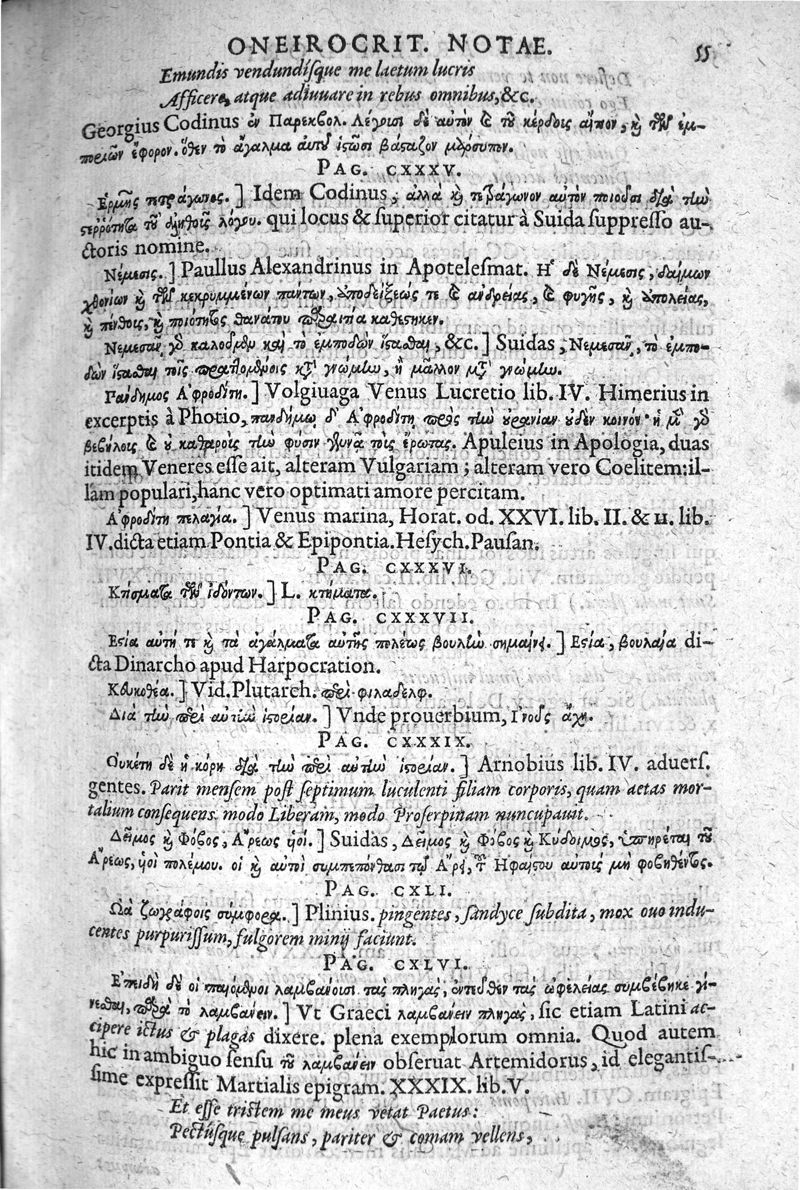 ONEIROCRIT. NOTAE. 55
Emundis vendundisque me laetum lucris
Afficere, atque adiuuare in rebus omnibus, &c.
Georgius Codinus ἐν Παρεκβολ. Λέγουσι δὲ αὐτὸν καὶ τοῦ κέρδους αἴτιον, καὶ τῶν ἐμ-
ποριῶν ἔφορον. ὅθεν τὸ ἄγαλμα αὐτοῦ ἱστῶσι βαστάζον μαρσύπον.
PAG. CXXXV.
Ἑρμῆς τετράγωνος. ] Idem Codinus, ἀλλὰ καὶ τετράγωνον αὐτὸν ποιοῦσι διὰ τὴν
στερρότητα τοῦ ἀληθοῦς λόγου. qui locus & superior citatur à Suida suppresso au-
ctoris nomine.
Νέμεσις. ] Paullus Alexandrinus in Apotelesmat. Ἡ δὲ Νέμεσις, δαίμων
χθονίων καὶ τῶν κεκρυμμένων πάντων, ὑποδείξεώς τε καὶ ἀνδρείας, καὶ φυγῆς, καὶ
καὶ πένθους, καὶ ποιότητος θανάτου παραιτία καθέστηκεν.
Νεμεσᾶν γὰρ καλοῦμεν καὶ τὸ ἐμποδὼν ἵστασθαι, &c. ] Suidas, Νεμεσᾶν, τὸ ἐμπο-
δὼν ἵστασθαι τοῖς κατὰ γνώμην, ἢ μᾶλλον μετὰ γνώμην.
Πάνδημος Ἀφροδίτη. ] Volgiuaga Venus Lucretio lib. IV. Himerius in
excerptis à Photio, πανδήμῳ δ' Ἀφροδίτῃ πρὸς τὴν οὐρανίαν οὐδὲν κοινόν· ἡ μὲν γὰρ
βεβήλοις καὶ οὐ καθαροῖς τὴν φύσιν τοὺς ἔρωτας. Apuleius in Apologia, duas
itidem Veneres esse ait, alteram Vulgariam; alteram vero Coelitem: il-
lam populari, hanc vero optimati amore percitam.
Ἀφροδίτη πελαγία. ] Venus marina, Horat. od. XXVI. lib. II. & H. lib.
IV. dicta etiam Pontia & Epipontia. Hesych. Pausan.
PAG. CXXXVI.
Κτίσματα τῶν ἰδόντων. ] L. κτήματα.
PAG. CXXXVII.
Ἑστία αὐτή τε καὶ τὰ ἀγάλματα αὐτῆς πολέως βουλὴν σημαίνει. ] Ἑστία, βουλαία di-
cta Dinarcho apud Harpocration.
] Vid. Plutarch. περὶ φιλαδελφ.
Διὰ τὴν περὶ αὐτὴν ἱστορίαν. ] Vnde prouerbium, Ἰνοῦς ἄχη.
PAG. CXXXIX.
Οὐκέτι δὲ ἡ κόρη διὰ τὴν περὶ αὐτὴν ἱστορίαν. ] Arnobius lib. IV. aduers.
gentes. Parit mensem post septimum luculenti filiam corporis, quam aetas mor-
talium consequens, modo Liberam, modo Proserpinam nuncupauit.
Δεῖμος καὶ Φόβος, Ἄρεως υἱοί. ] Suidas, Δεῖμος καὶ Φόβος καὶ Κύδοιμος, ὑπηρέται τοῦ
Ἄρεως, υἱοὶ πολέμου. οἱ καὶ αὐτοὶ συμπεπόνθασι τῷ Ἄρει, τοῦ Ἡφαίστου αὐτοῖς μὴ φοβηθέντος.
PAG. CXLI.
Ὠὰ ζωγράφοις σύμφορα. ] Plinius. pingentes, sandyce subdita, mox ouo indu-
centes purpurissum, fulgorem minij faciunt.
PAG. CXLVI.
Ἐπειδὴ δὲ οἱ παιόμενοι λαμβάνουσι τὰς πληγάς, ἐντεῦθεν τὰς ὠφελείας συμβέβηκε γί-
νεσθαι, παρὰ τὸ λαμβάνειν. ] Vt Graeci λαμβάνειν πληγὰς, sic etiam Latini ac-
cipere ictus & plagas dixere. plena exemplorum omnia. Quod autem
hic in ambiguo sensu τοῦ λαμβάνειν obseruat Artemidorus, id elegantis-
sime expressit Martialis epigram. XXXIX. lib. V.
Et esse tristem me meus vetat Paetus:
Pectusque pulsans, pariter & comam vellens,